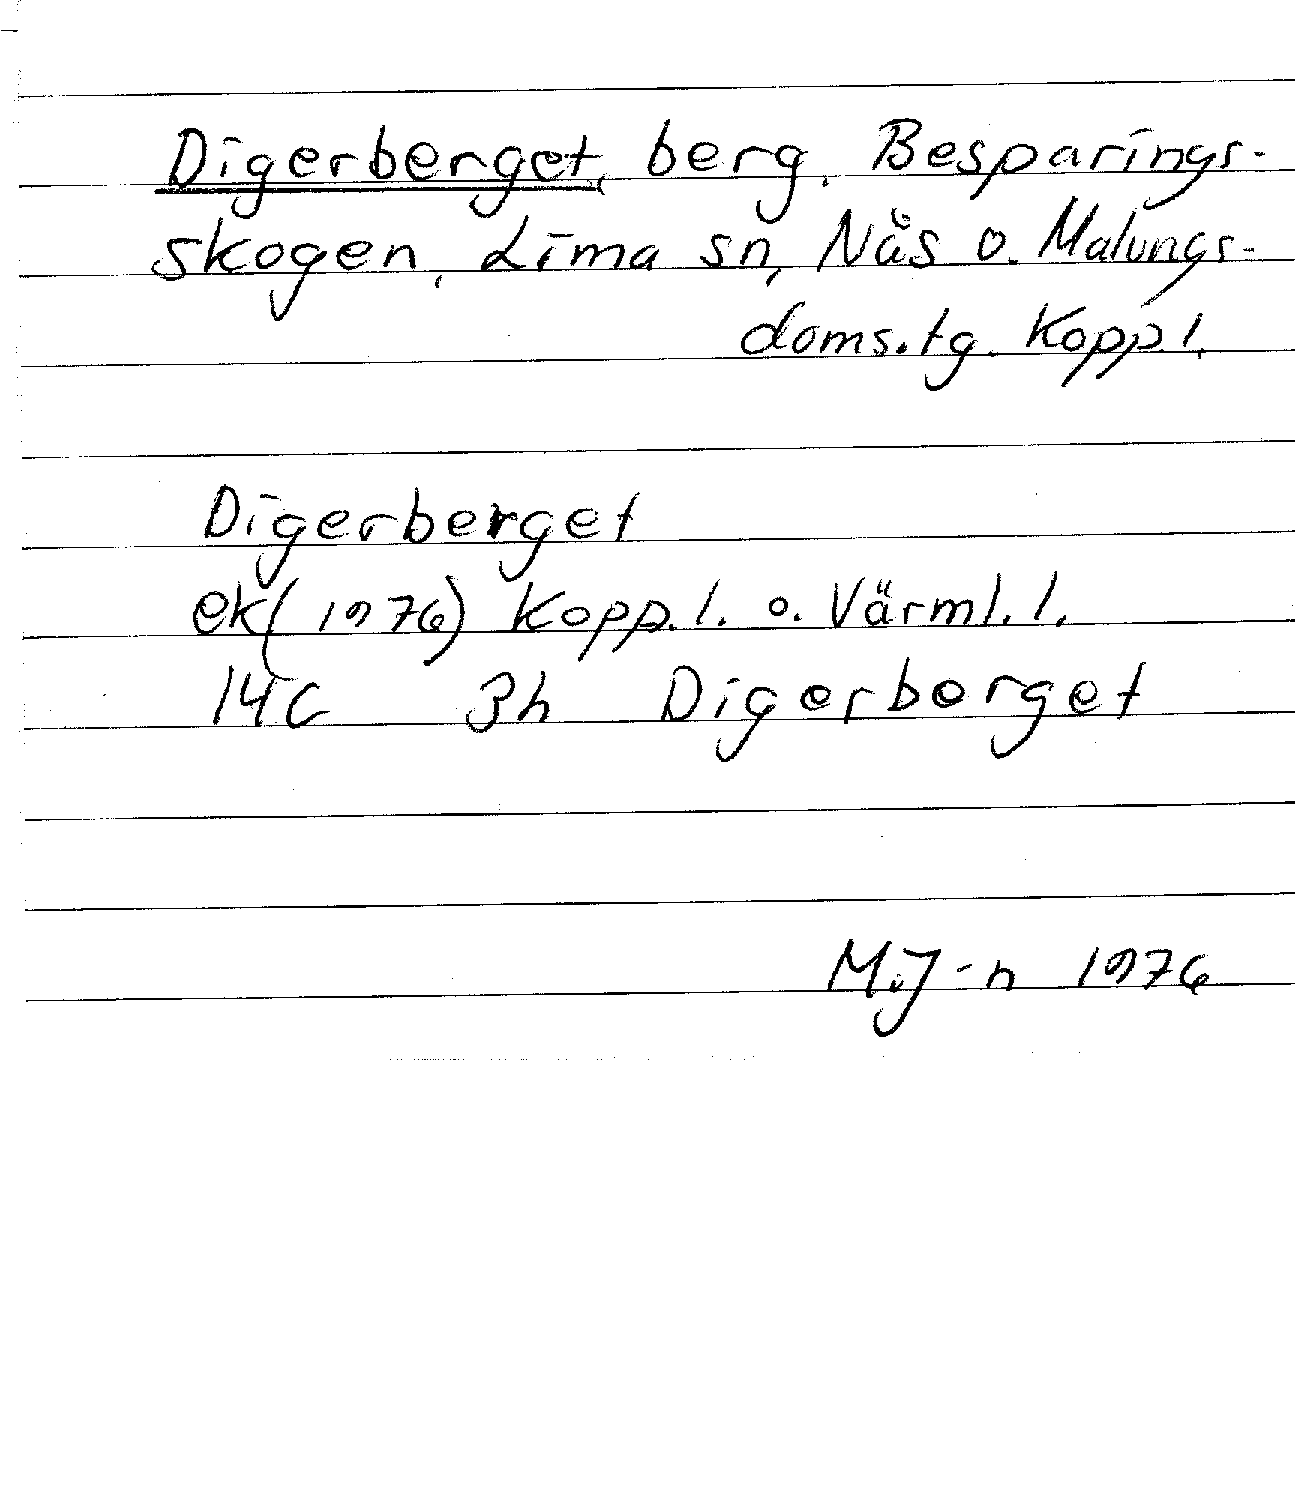 Digerberget, berg, Besparings-
skogen, Lima sn, Nås o. Malungs-
doms.tg. Kopp.l.
Digerberget
ek(1976) Kopp.l. o. Värml.l.
14C 3h Digerberget
M.J-n 1976